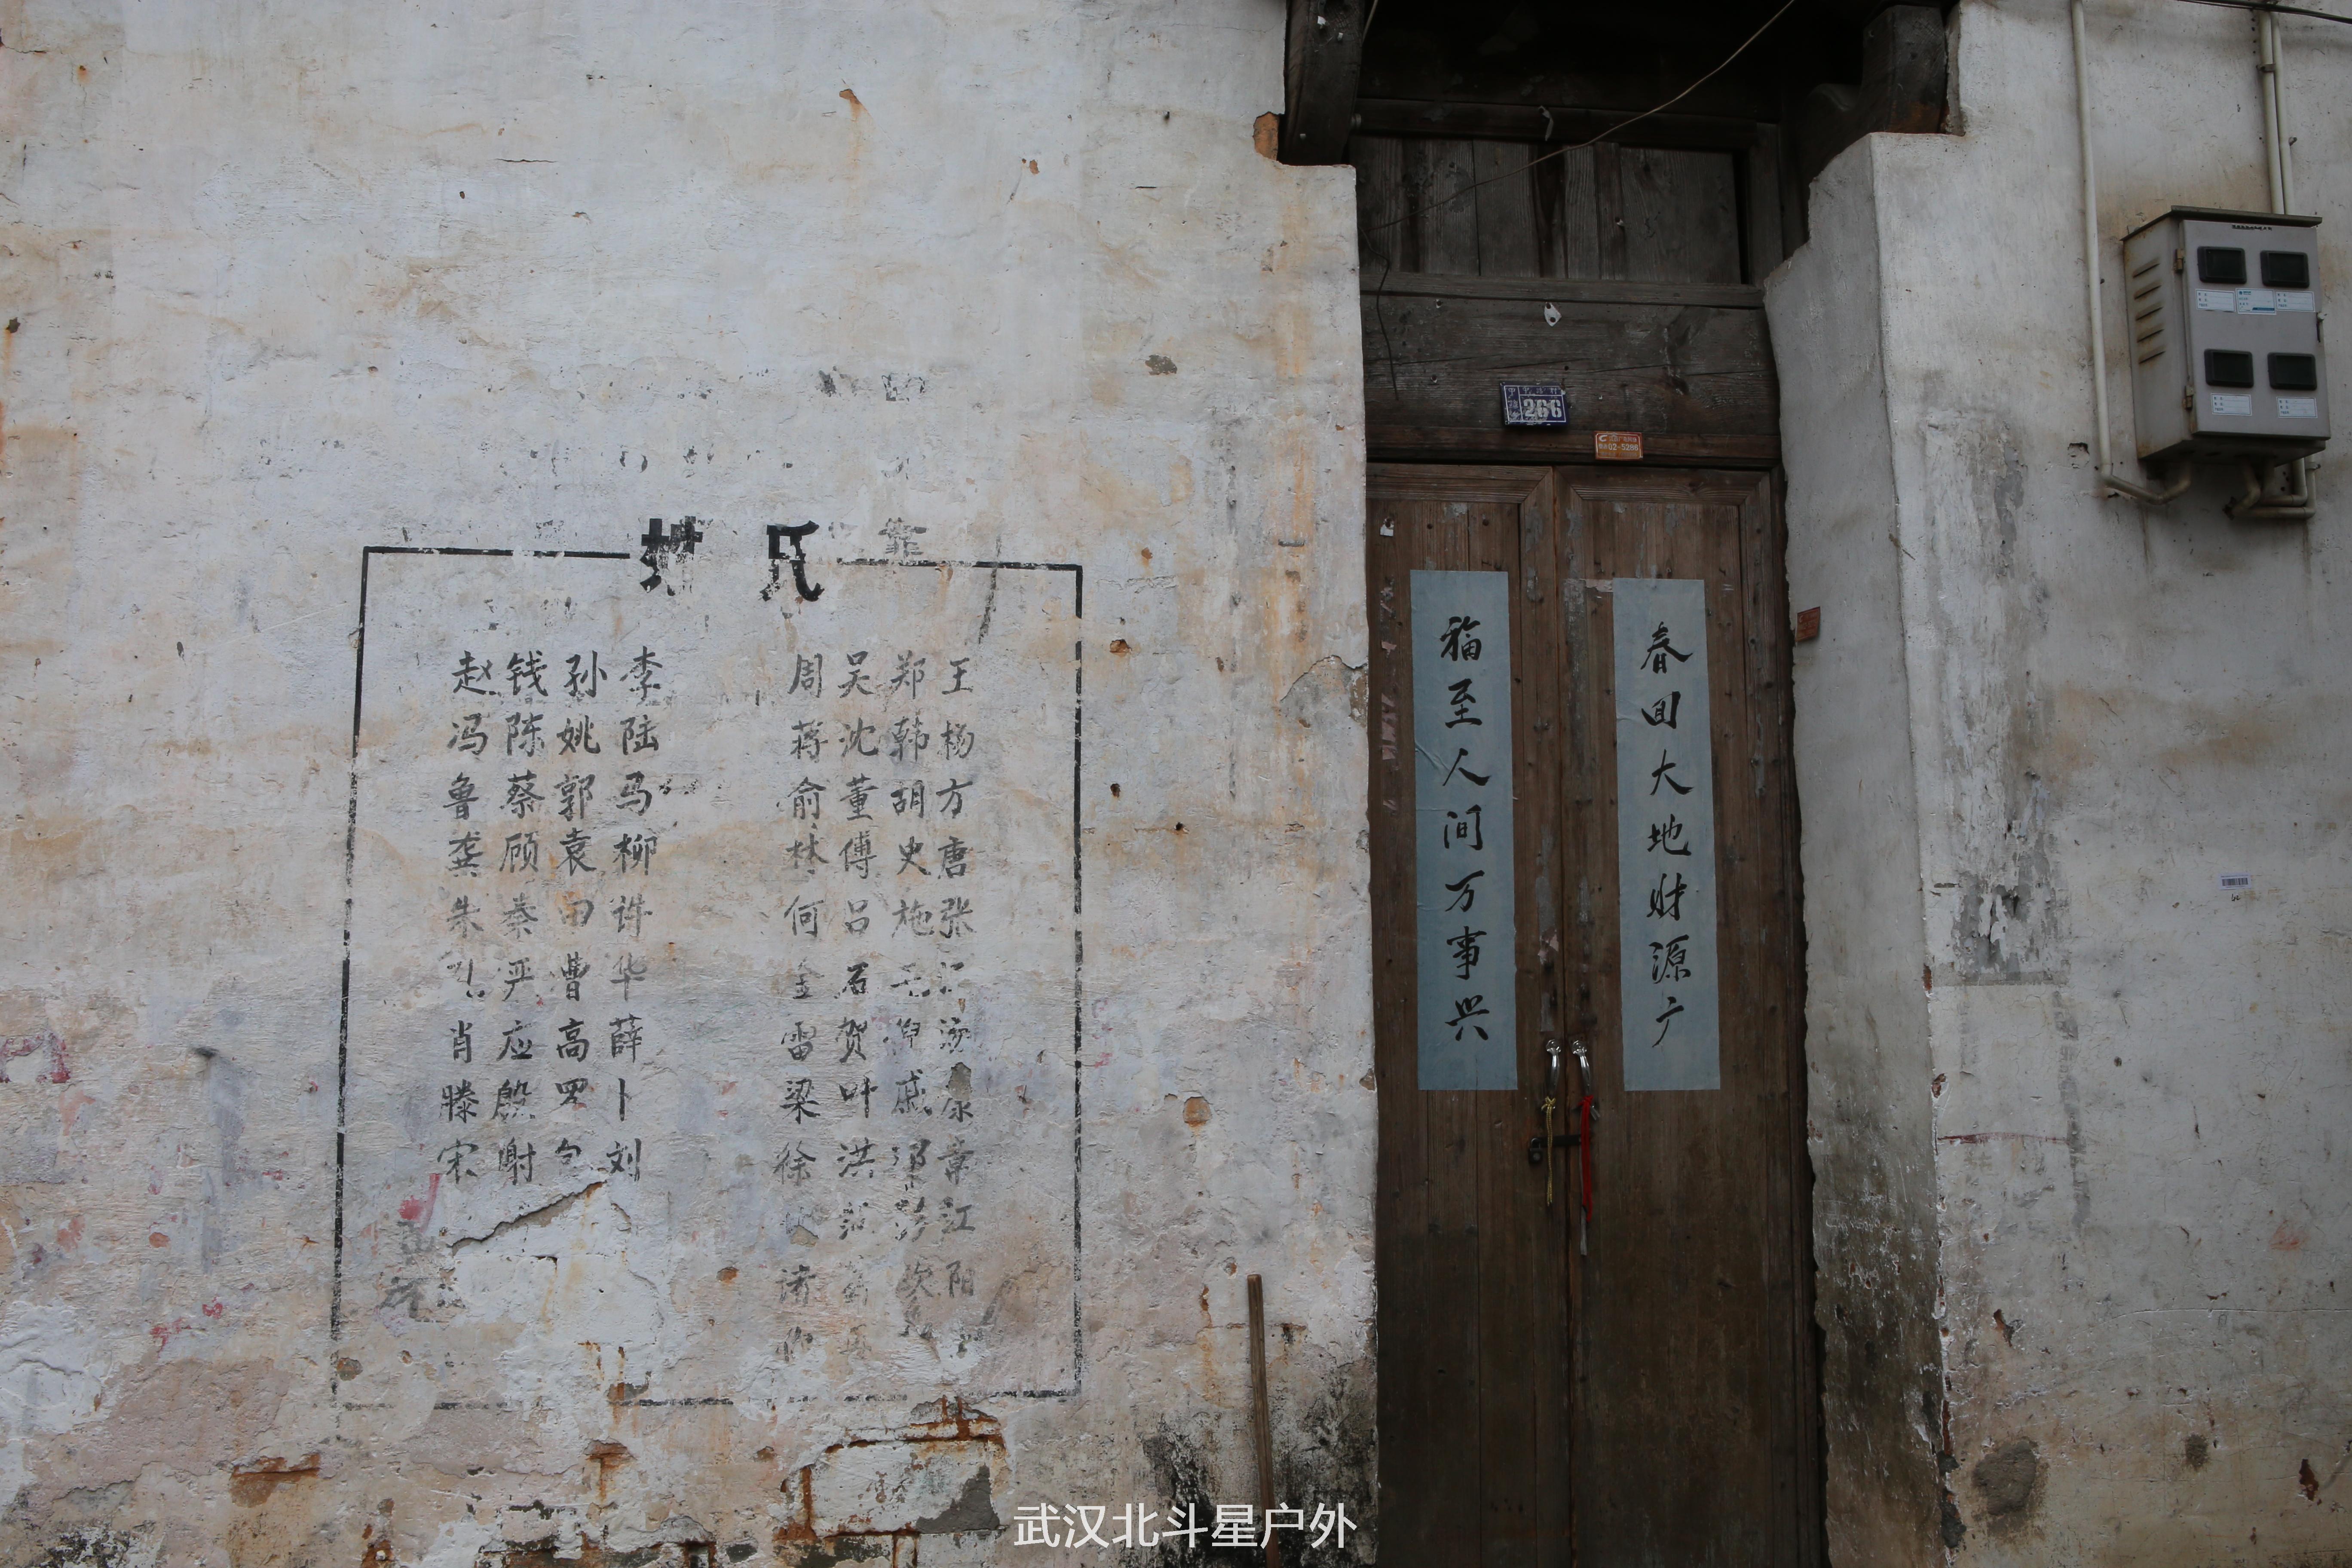 姓 氏
赵 钱 孙 李 周 吴 郑 王
冯 陈 姚 陆 蒋 沈 韩 杨
鲁 蔡 郭 马 俞 董 胡 方
龚 顾 袁 柳 林 傅 史 唐
朱 秦 田 许 何 吕 施 张
孔 严 曹 华 金 石 毛
肖 应 高 薛 雷 贺 倪 汤
滕 殷 罗 卜 梁 叶 戚 康
宋 谢 包 刘 徐 洪 邓 章
彭 江
诸 阳
266
02-5286
春回大地财源广
福至人间万事兴
武汉北斗星户外